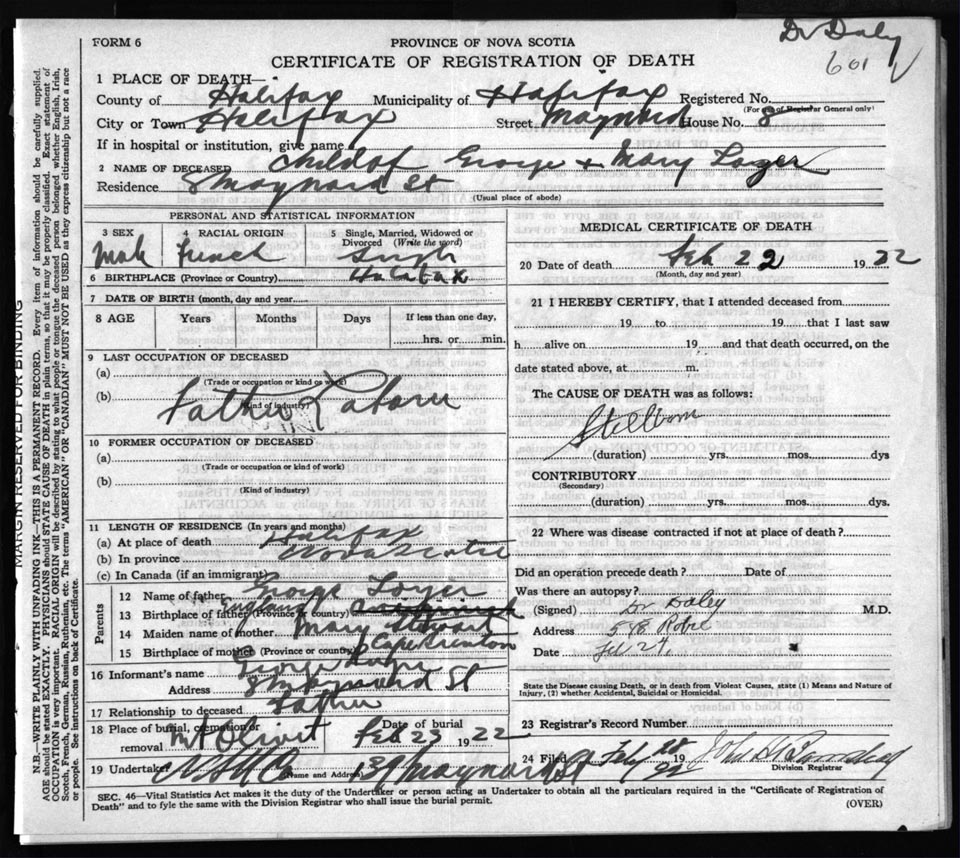 Dr Daly
601
FORM 6
PROVINCE OF NOVA SCOTIA
CERTIFICATE OF REGISTRATION OF DEATH
1 PLACE OF DEATH—
County of Halifax Municipality of Halifax Registered No.
(For use of Registrar General only)
City or Town Halifax Street Maynard House No. 8
If in hospital or institution, give name
2 NAME OF DECEASED Child of George + Mary Loyer
Residence 8 Maynard St
(Usual place of abode)
PERSONAL AND STATISTICAL INFORMATION
3 SEX 4 RACIAL ORIGIN 5 Single, Married, Widowed or Divorced (Write the word)
Male French Single
6 BIRTHPLACE (Province or Country) Halifax
7 DATE OF BIRTH (month, day and year)
8 AGE Years Months Days If less than one day,
hrs. or min.
9 LAST OCCUPATION OF DECEASED
(a)
(Trade or occupation or kind of work)
(b) Father Laborer
(Kind of industry)
10 FORMER OCCUPATION OF DECEASED
(a)
(Trade or occupation or kind of work)
(b)
(Kind of industry)
11 LENGTH OF RESIDENCE (In years and months)
(a) At place of death Halifax
(b) In province Nova Scotia
(c) In Canada (if an immigrant)
Parents
12 Name of father George Loyer
13 Birthplace of father (Province or country) England
14 Maiden name of mother Mary Stewart
15 Birthplace of mother (Province or country) Cape Breton
16 Informant's name George Loyer
Address 8 Maynard St
17 Relationship to deceased Father
18 Place of burial, cremation or removal Mt Olivet Date of burial Feb 23 1922
19 Undertaker 139 Maynard St
(Name and Address)
MEDICAL CERTIFICATE OF DEATH
20 Date of death Feb 22 1922
(Month, day and year)
21 I HEREBY CERTIFY, that I attended deceased from
19 to 19 that I last saw
h alive on 19 and that death occurred, on the
date stated above, at m.
The CAUSE OF DEATH was as follows:
Stillborn
(duration) yrs. mos. dys
CONTRIBUTORY
(Secondary)
(duration) yrs. mos. dys.
22 Where was disease contracted if not at place of death?
Did an operation precede death? Date of
Was there an autopsy?
(Signed) Dr Daley M.D.
Address 548 Robie
Date Feb 24.
State the Disease causing Death, or in death from Violent Causes, state (1) Means and Nature of
Injury, (2) whether Accidental, Suicidal or Homicidal.
23 Registrar's Record Number
24 Filed Feby 28 1922 John
Division Registrar
SEC. 46—Vital Statistics Act makes it the duty of the Undertaker or person acting as Undertaker to obtain all the particulars required in the "Certificate of Registration of
Death" and to fyle the same with the Division Registrar who shall issue the burial permit.
(OVER)
MARGIN RESERVED FOR BINDING
N.B.—WRITE PLAINLY WITH UNFADING INK—THIS IS A PERMANENT RECORD. Every item of information should be carefully supplied.
AGE should be stated EXACTLY. PHYSICIANS should STATE CAUSE OF DEATH in plain terms, so that it may be properly classified. Exact statement of
OCCUPATION is very important. RACIAL ORIGIN will be described by stating to what people or tongue the deceased person belonged whether English, Irish,
Scotch, French, German, Russian, Ruthenian, etc. The terms "AMERICAN" or "CANADIAN" MUST NOT BE USED as they express citizenship but not a race
or people. See instructions on back of Certificate.